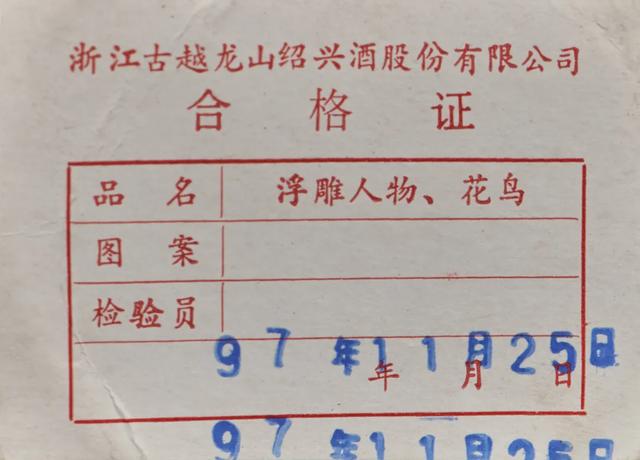 浙江古越龙山绍兴酒股份有限公司
合格证
品名 浮雕人物、花鸟
图案
检验员
97年11月25日
年月日
97年11月25日